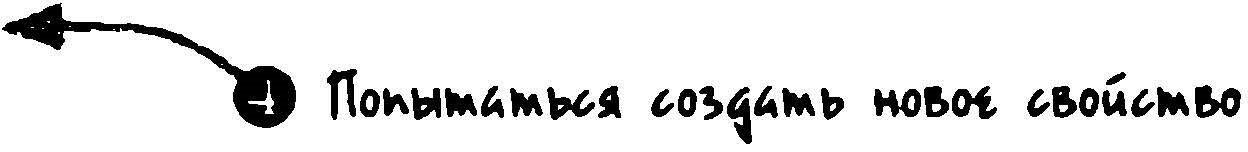 4 Попытаться создать новое свойство